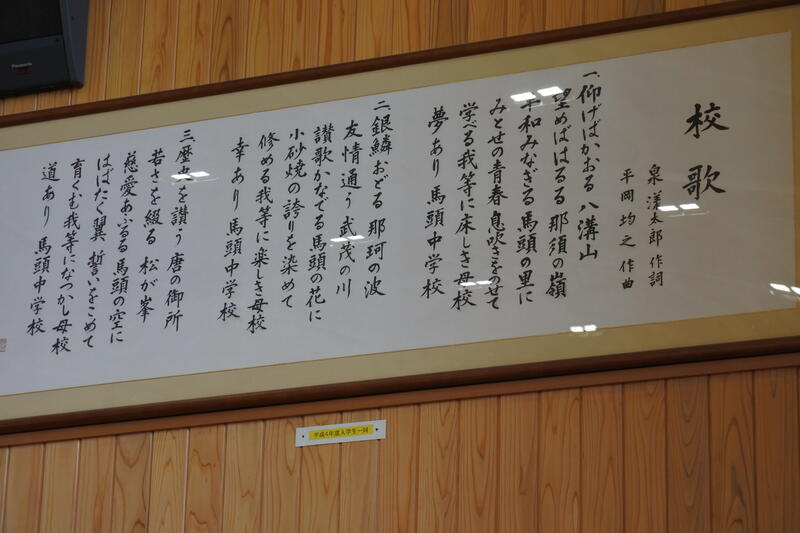 校歌
泉 洋太郎 作詞
平岡均之 作曲
一、仰げばかおる 八溝山
望めばはるる 那須の嶺
平和みなぎる 馬頭の里に
みとせの青春 息吹きをのせて
学べる我等に 床しき母校
夢あり 馬頭中学校
二、銀鱗おどる 那珂の波
友情通う 武茂の川
讃歌かなでる 馬頭の花に
小砂焼の 誇りを染めて
修める我等に 楽しき母校
幸あり 馬頭中学校
三、歴史を讃う 唐の御所
若さを綴る 松が峯
慈愛あふるる 馬頭の空に
はばたく翼 誓いをこめて
育くむ我等に なつかし母校
道あり 馬頭中学校
Panasonic
平成6年度入学生一同